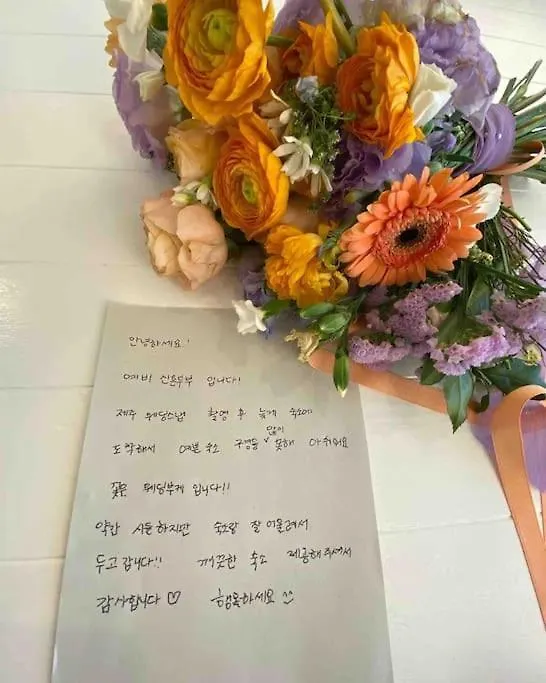 안녕하세요!
예비 신혼부부 입니다!
제주 웨딩스냅 촬영 후 늦게 숙소에
도착해서 예쁜 숙소 구경을 많이 못해 아쉬워요
꽃은 웨딩부케 입니다!!
약간 시들하지만 숙소랑 잘 어울려서
두고 갑니다!! 깨끗한 숙소 제공해주셔서
감사합니다 ♡ 행복하세요 ^^